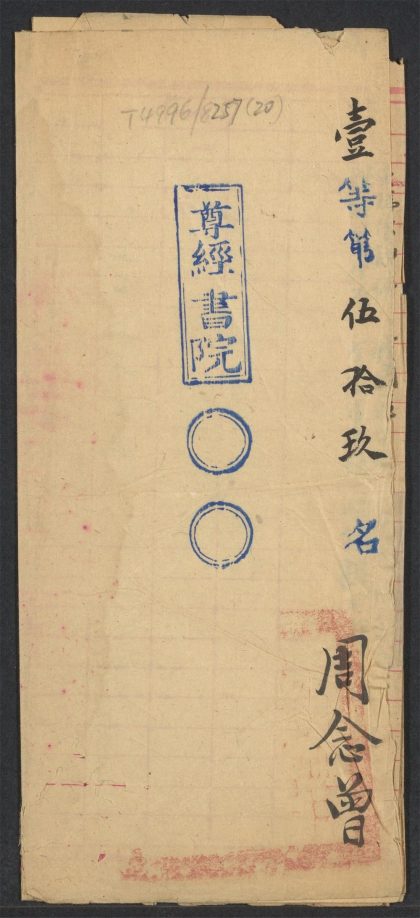 T4996/8257(20)
壹等第伍拾玖名
周念曾
尊經書院